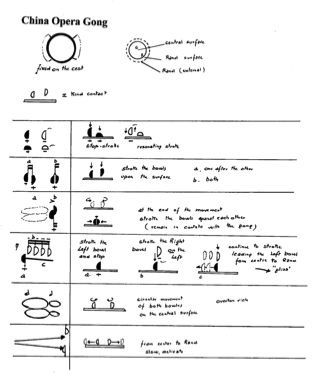 China Opera Gong
central surface
Rand surface
Rand (external)
fixed on the cent
= Hand contact
stop-stroke
resonating stroke
a b
stroke the bowls
upon the surface
a. one after the other
b. both
a b
at the end of the movement
stroke the bowls against each other
(remain in contact with the gong)
b
c
a
stroke the
left bowl
and stop
a
stroke the Right
bowl on the
left
b
continue to stroke
leading the left bowl
from center to Rand
"gliss"
c
circular movement
of both bowles
on the central surface
overten visib
from center to Rand
slow, motivate